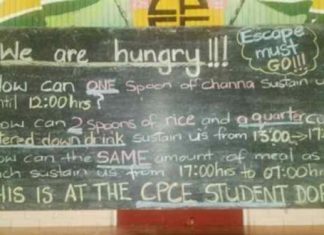 We are hungry!!!
Escape must GO!!!
How can ONE spoon of channa sustain u
until 12:00hrs?
How can 2 spoons of rice and a quarter cu
tered down drink sustain us from 13:00 → 17
ow can the SAME amount of meal as
ch sustain us from 17:00hrs to 07:00hr
HIS IS AT THE CPCE STUDENT DOR